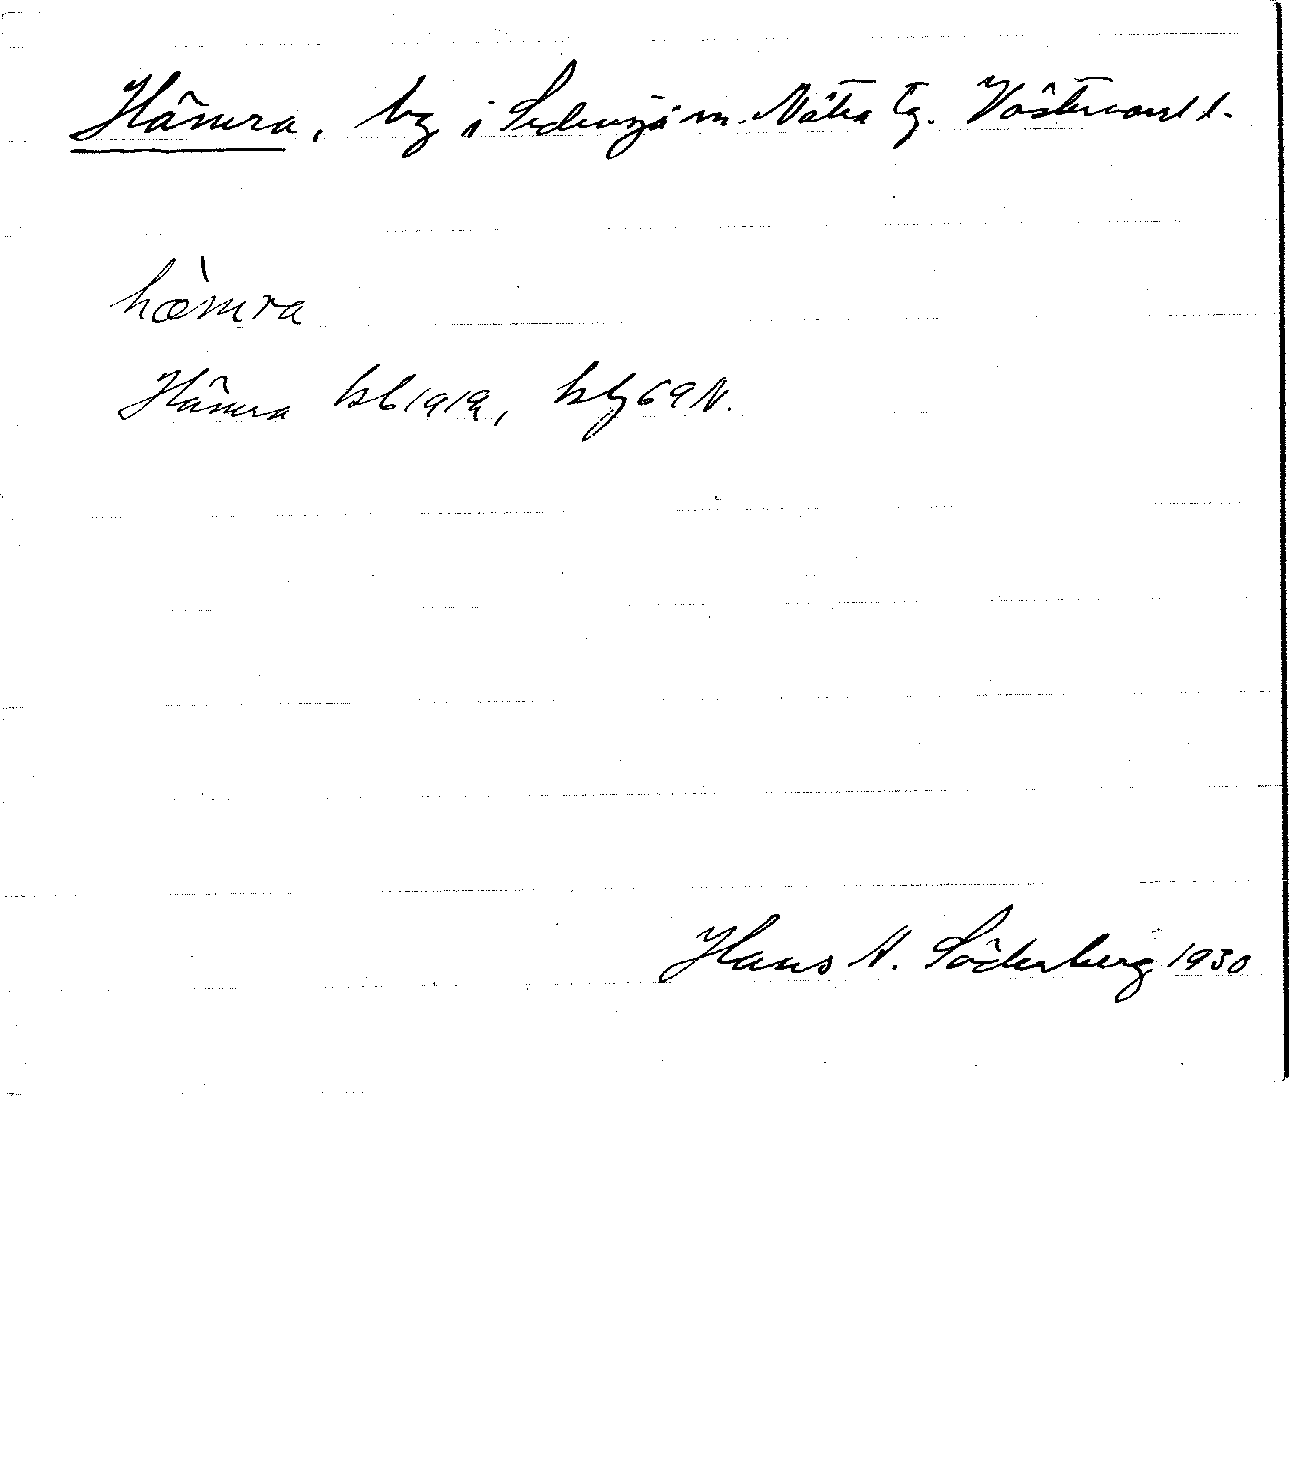 Hämra, by i Sidensjö sn. Nätra tg. Västernorrl. l.
hæ̀mra
Hämra kb 1919, kbg 69 N.
Hans A. Söderberg 1930